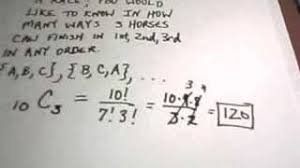 A RACE, YOU WOULD
LIKE TO KNOW IN HOW
MANY WAYS 3 HORSES
CAN FINISH IN 1st, 2nd, 3rd
IN ANY ORDER.
{A,B,C}, {B,C,A}, ...
10C3 = 10! / 7! 3! = 10·9·8 / 3·2 = 120
3 4